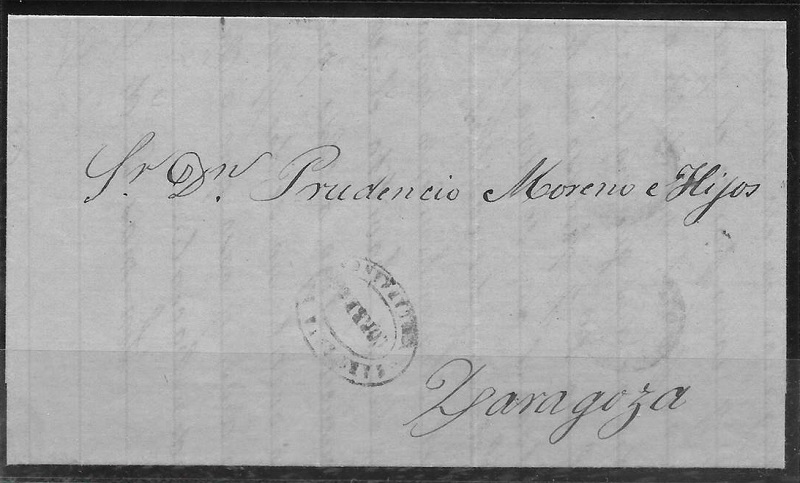 Sr. Dn. Prudencio Moreno e Hijos
Zaragoza